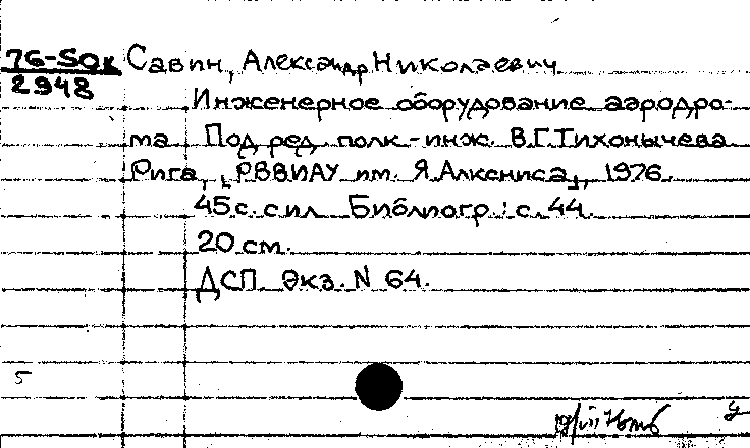 76-50к Савин, Александр Николаевич
2948
Инженерное оборудование аэродро-
ма Под ред. полк.-инж. В.Г.Тихонычева
Рига, "РВВИАУ им. Я.Алксниса", 1976.
45с. с ил. Библиогр.: с. 44.
20 см.
ДСП. Экз. N 64.
5